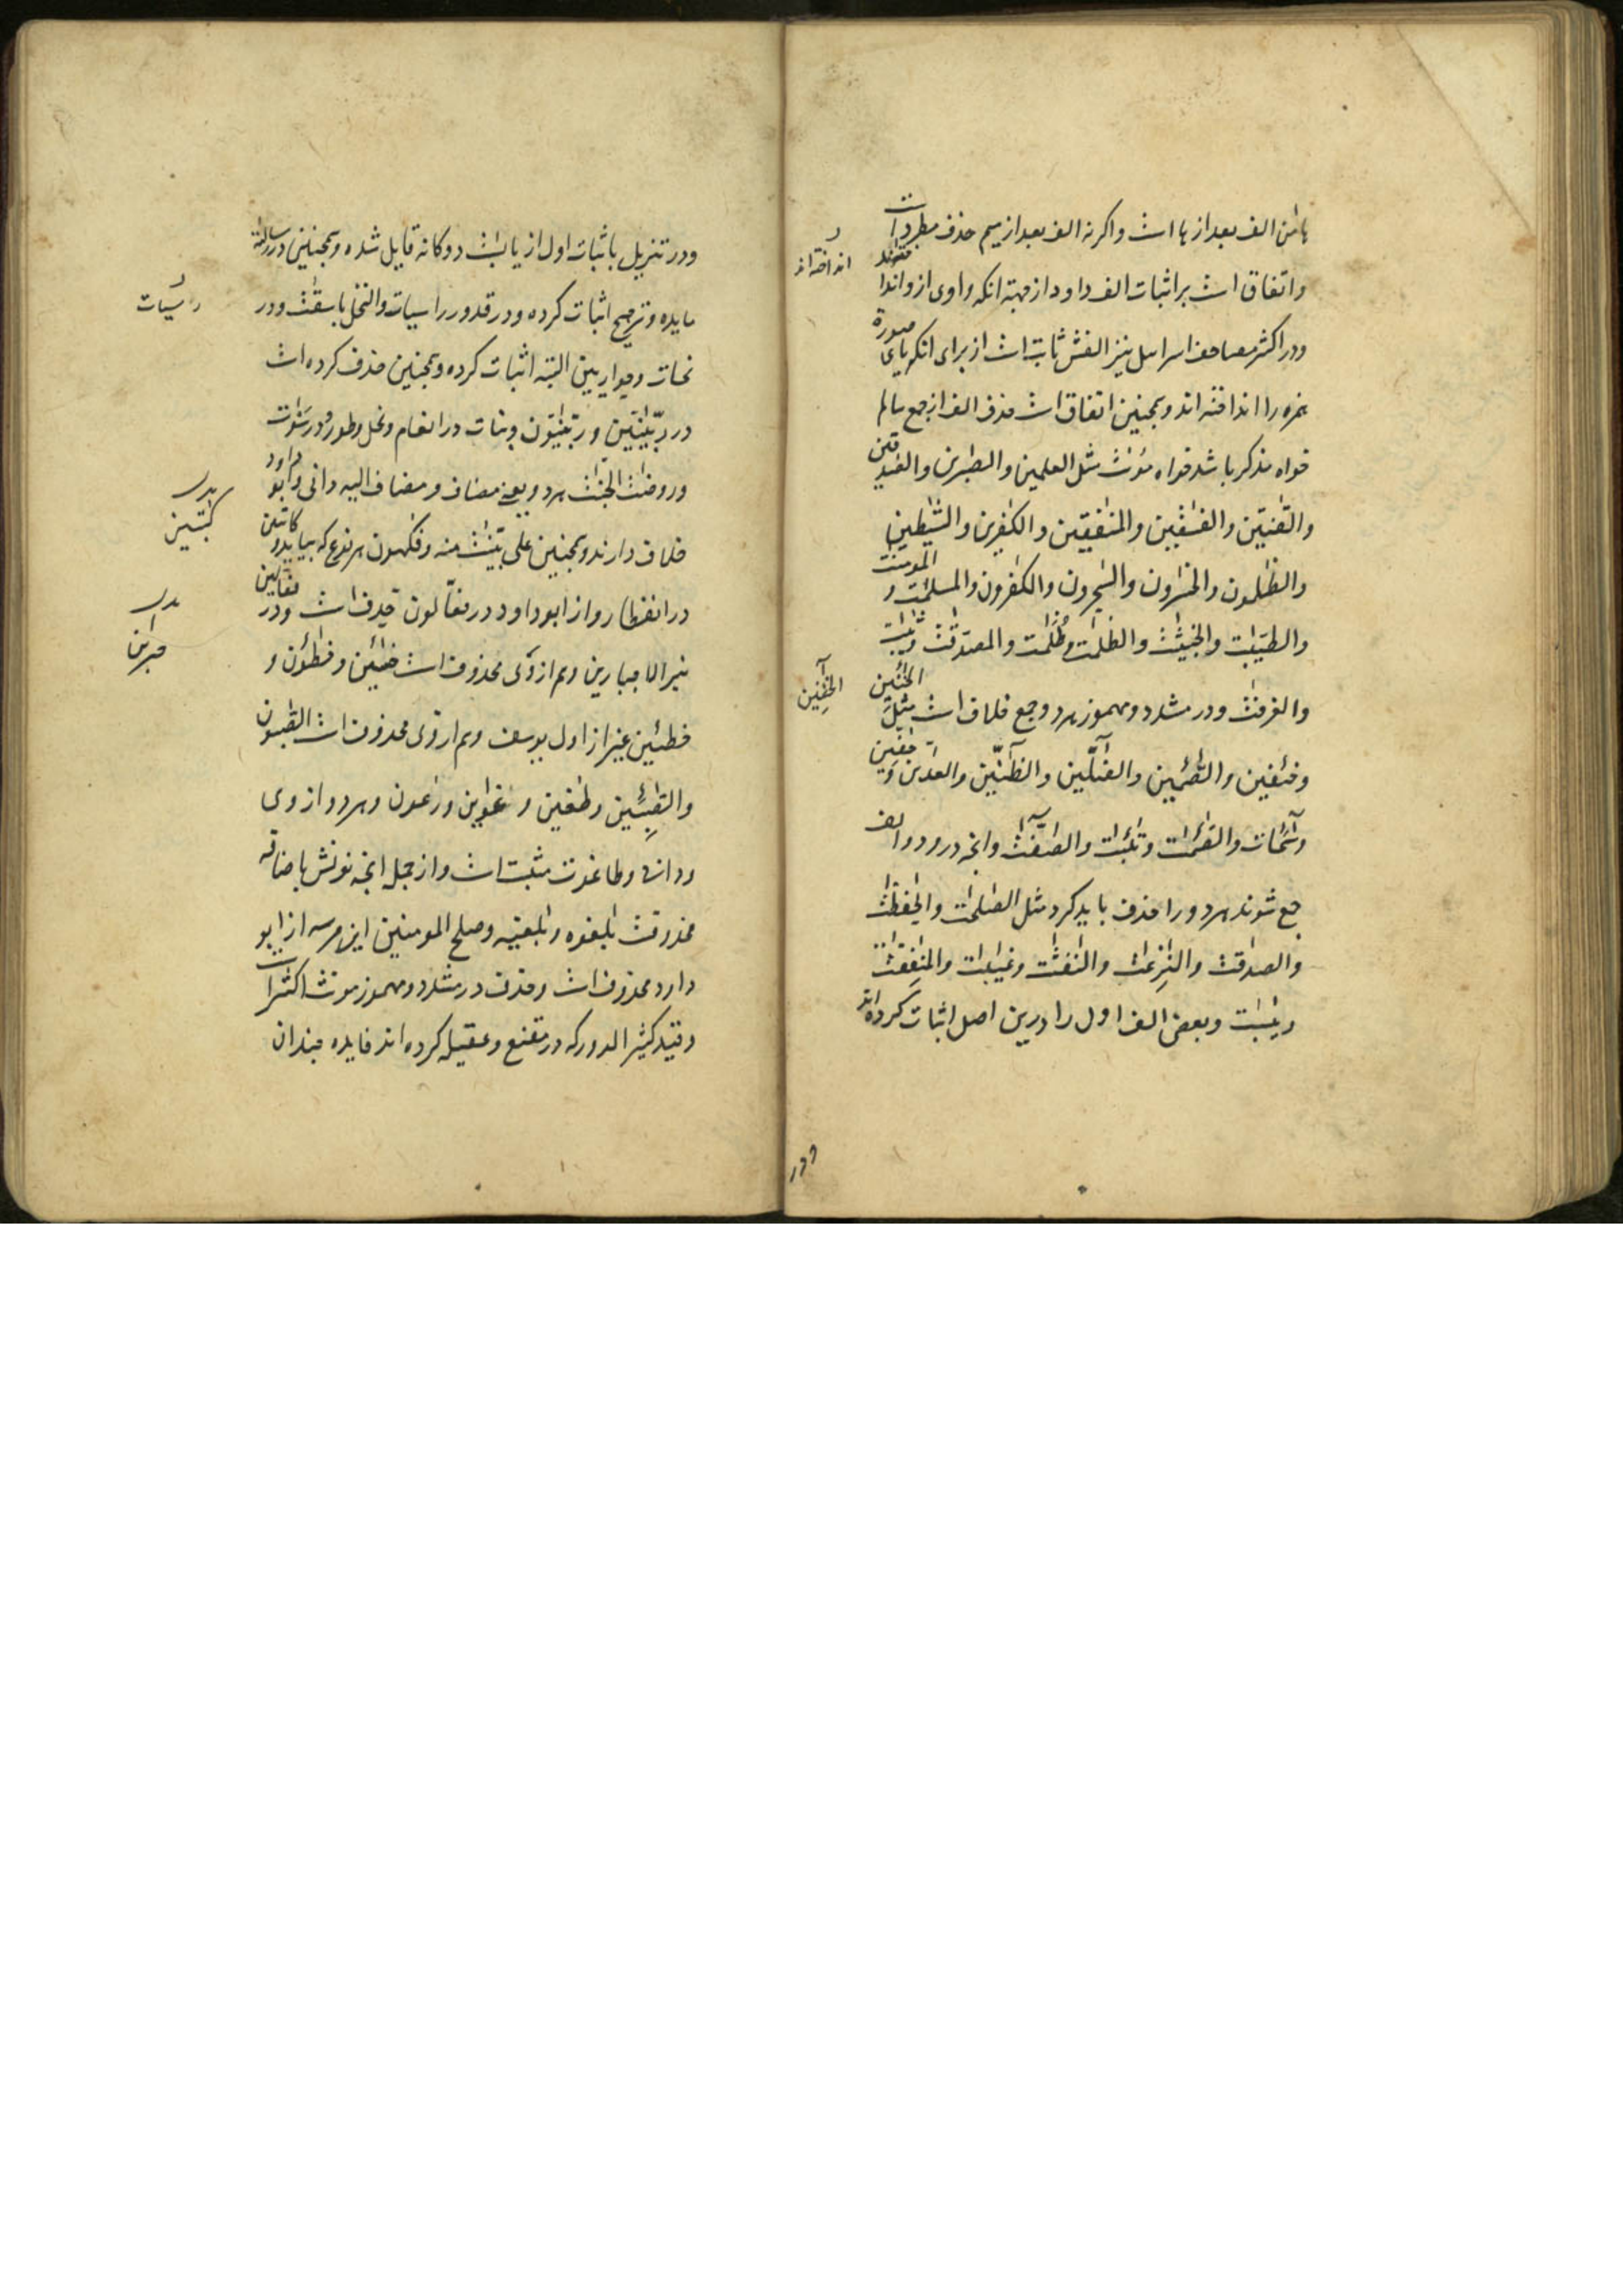 هامٰن الف بعد از ها است واکرنه الف بعد از میم حذف مطرد است
واتفاق است بر اثبات الف داود از جهة انکه واوی ازو انداخته‌اند
ودر اکثر مصاحف اسرایل نیز الفش ثابت است از برای انکه یای صورة
همزه را انداخته اند وهمچنین اتفاق است حذف الف از جمع سالم
خواه مذکر باشد خواه مؤنث مثل العلمین والصٰبرین والصٰدقین
والقٰنتین والفٰسقین والمنٰفقین والکٰفرین والشیٰطین
والظٰلمون والخٰسرون والسٰحرون والکٰفرون والمسلمٰت والمومنٰت
والطیبٰت والخبیثٰت والظلمٰت وظلمٰت والمصدقٰت وثیبٰت
والغرفٰت ودر مشدد ومهموز هر دو جمع خلاف است مثل الخٰئنین
وخٰئفین والصٰئمین والضٰلّین والظٰنّین والعٰدّین وحٰفین
وسٰئحات والصٰئمٰت وتٰئبٰت والصٰفٰت وانچه درو دو الف
جمع شوند هر دو را حذف باید کرد مثل الصٰلحٰت والحٰفظٰت
والصٰدقٰت والنٰزعٰت والنفٰثٰت وغیٰبٰت والمنٰفقٰت
وبعض الف اول را درین اصل اثبات کرده اند
انداخته اند
الخٰفین
ودر
ودر تنزیل باثبات اول از یابسٰت دوکانه قایل شده وهمچنین در رسالته
مایده وترجیح اثبات کرده ودر قدور راسیات والنخل باسقٰت ودر
نحسات وحواریین البته اثبات کرده وهمچنین حذف کرده است
در ربّٰنیّین وربّٰنیّون وبنات در انعام ونحل وطور ودر سمٰوٰت
وروضٰت الجنٰت هر دو یعنی مضاف ومضاف الیه دانی وابو داود
خلاف دارند وهمچنین علی بیّنٰت منه وفکهون هر نوع که بیاید وکاتبین
در انفطار واز ابو داود در فعّالون حذف است ودر فعّالین
غیر الا جبارین وهم از وی محذوف است خٰسئین وخٰطئون و
خٰطئین غیر از اول یوسف وهم از وی محذوف است الصٰبئون
والصٰبِئین وطٰغین وغٰوین ورٰعون وهر دو از وی
ودانی وطاغوت مثبت است واز جمله انچه نونش باضافه
محذوفست بٰلغوه وبٰلغیه وصٰلح المومنین این هر سه از ابو
داود محذوف است وحذف در مشدد ومهموز مونث اکثر است
وقید کثیر الدور که در مقنع وعقیله کرده اند فایده چندان
رٰسیات
بدل
کٰتبین
بدل
جبٰرین